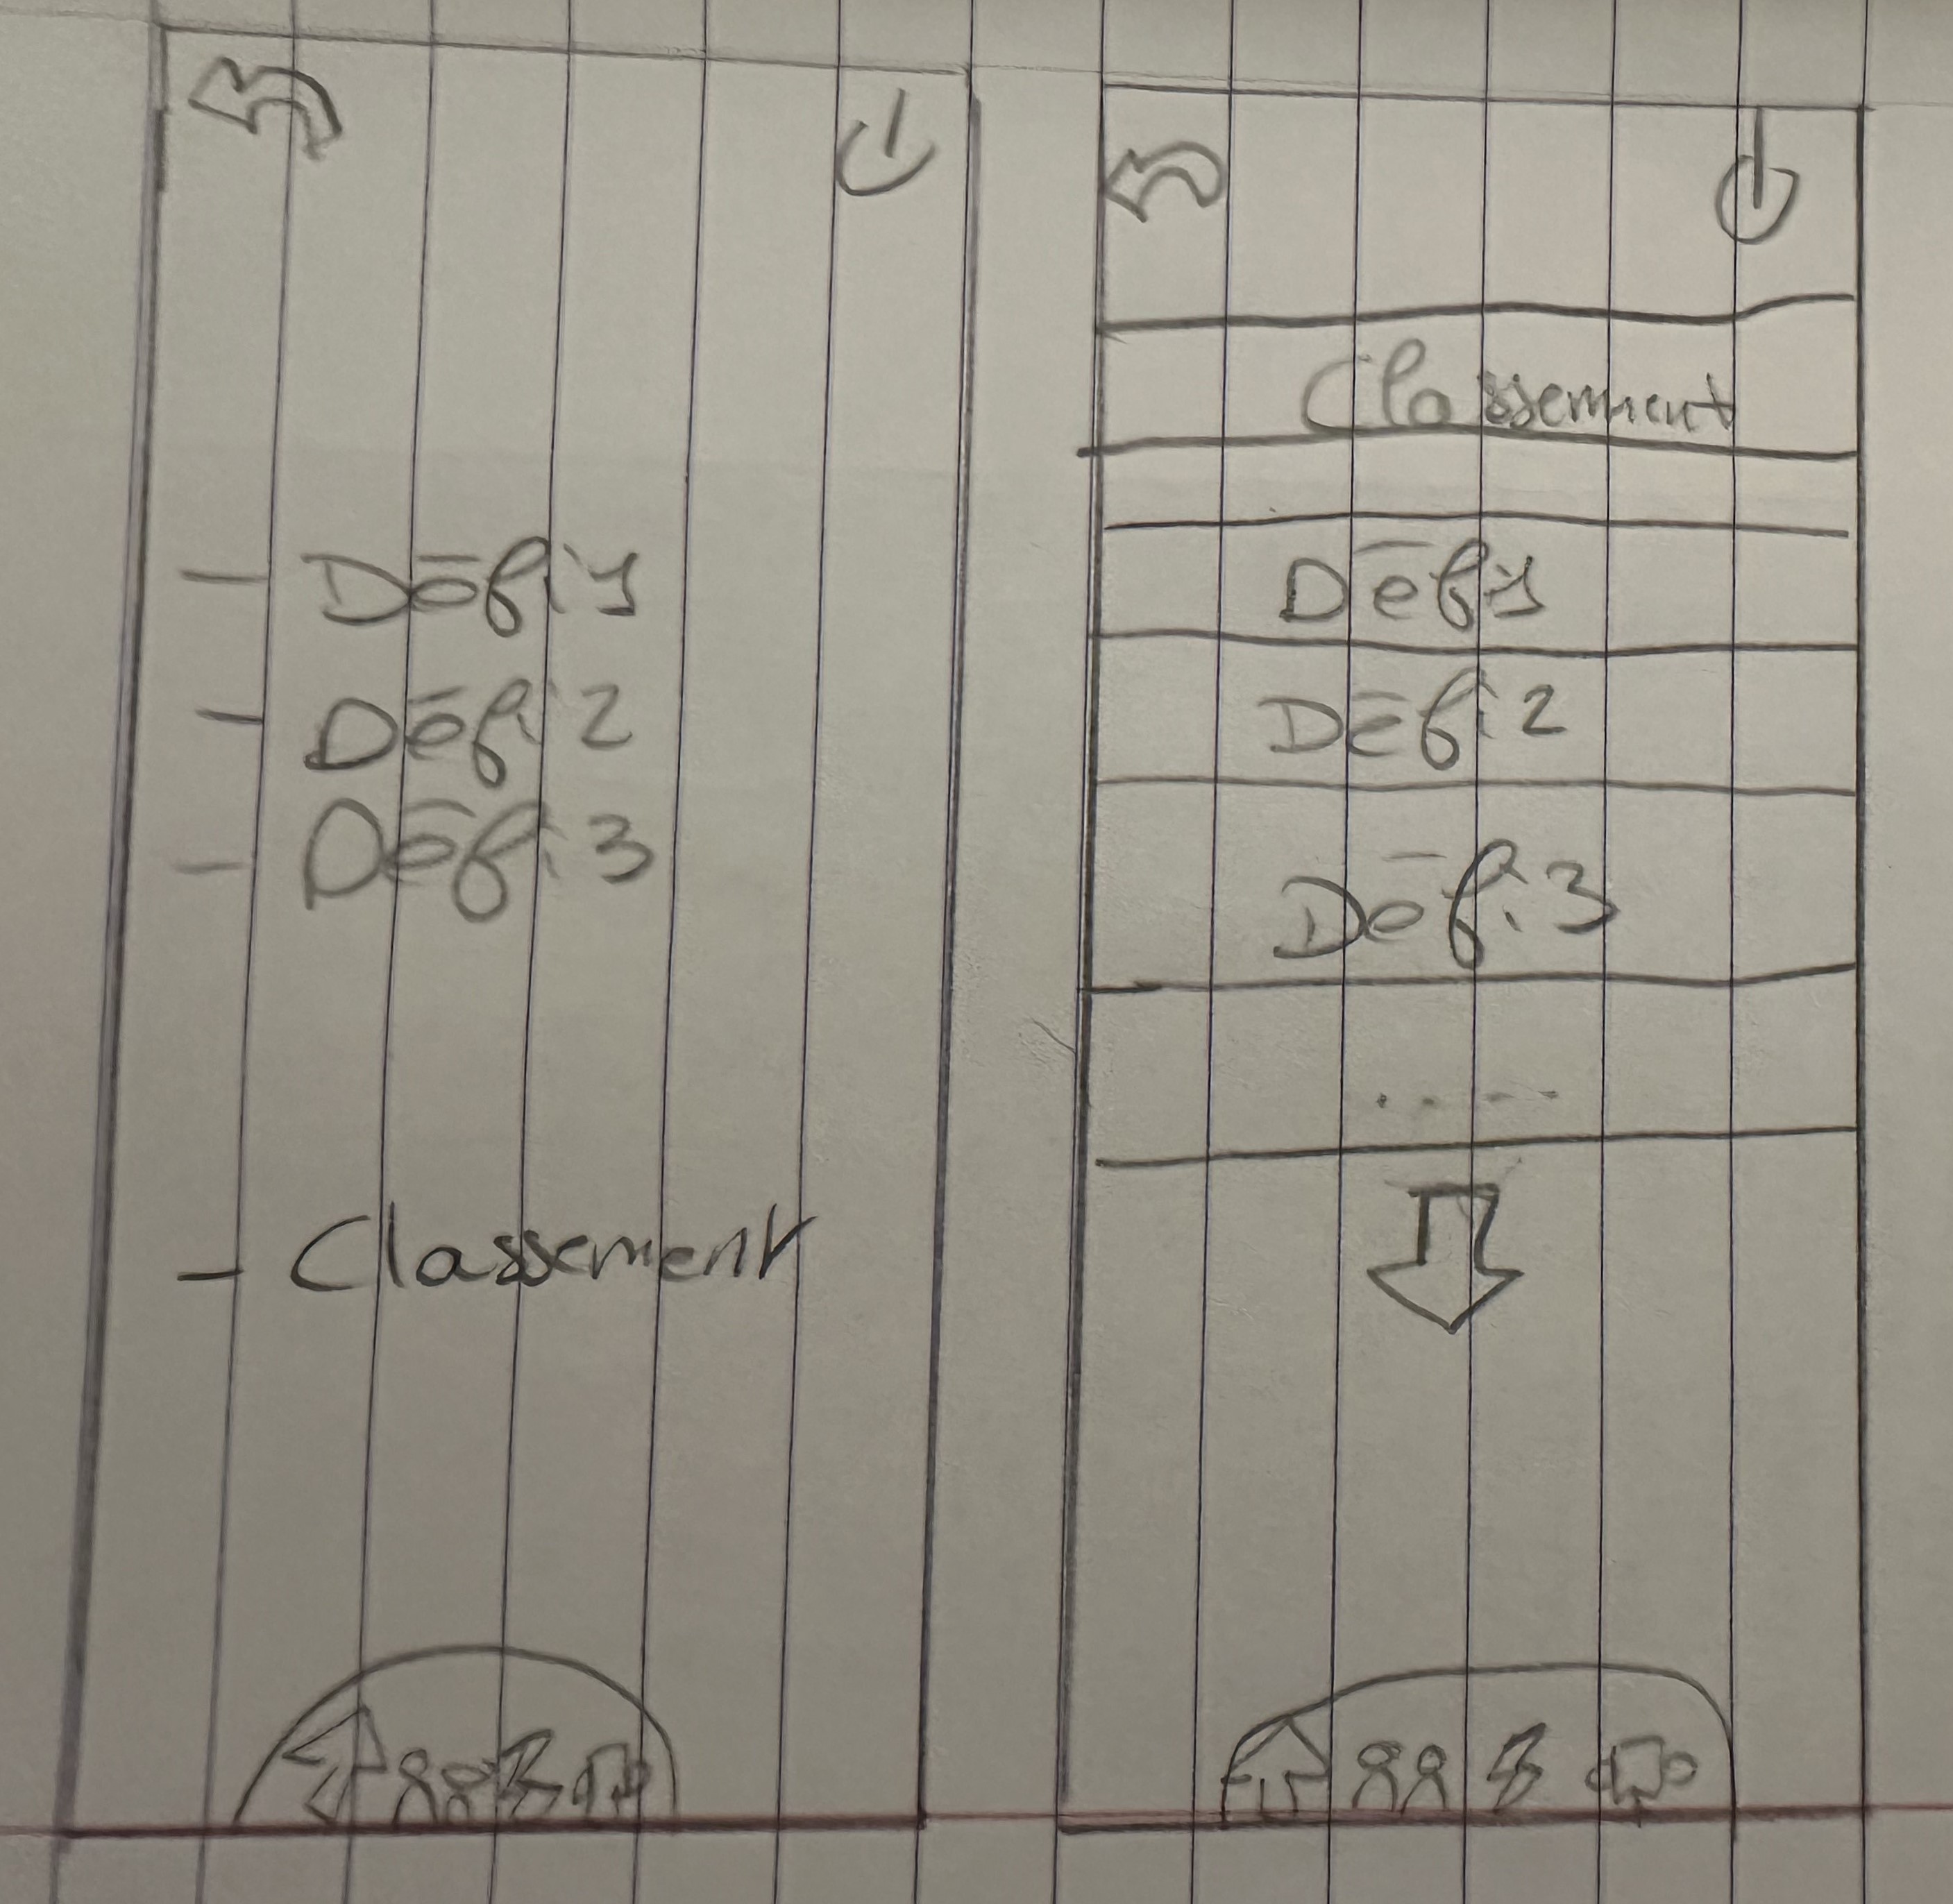 - Défi 1
- Défi 2
- Défi 3
- Classement
Classement
Défi 1
Défi 2
Défi 3
.....